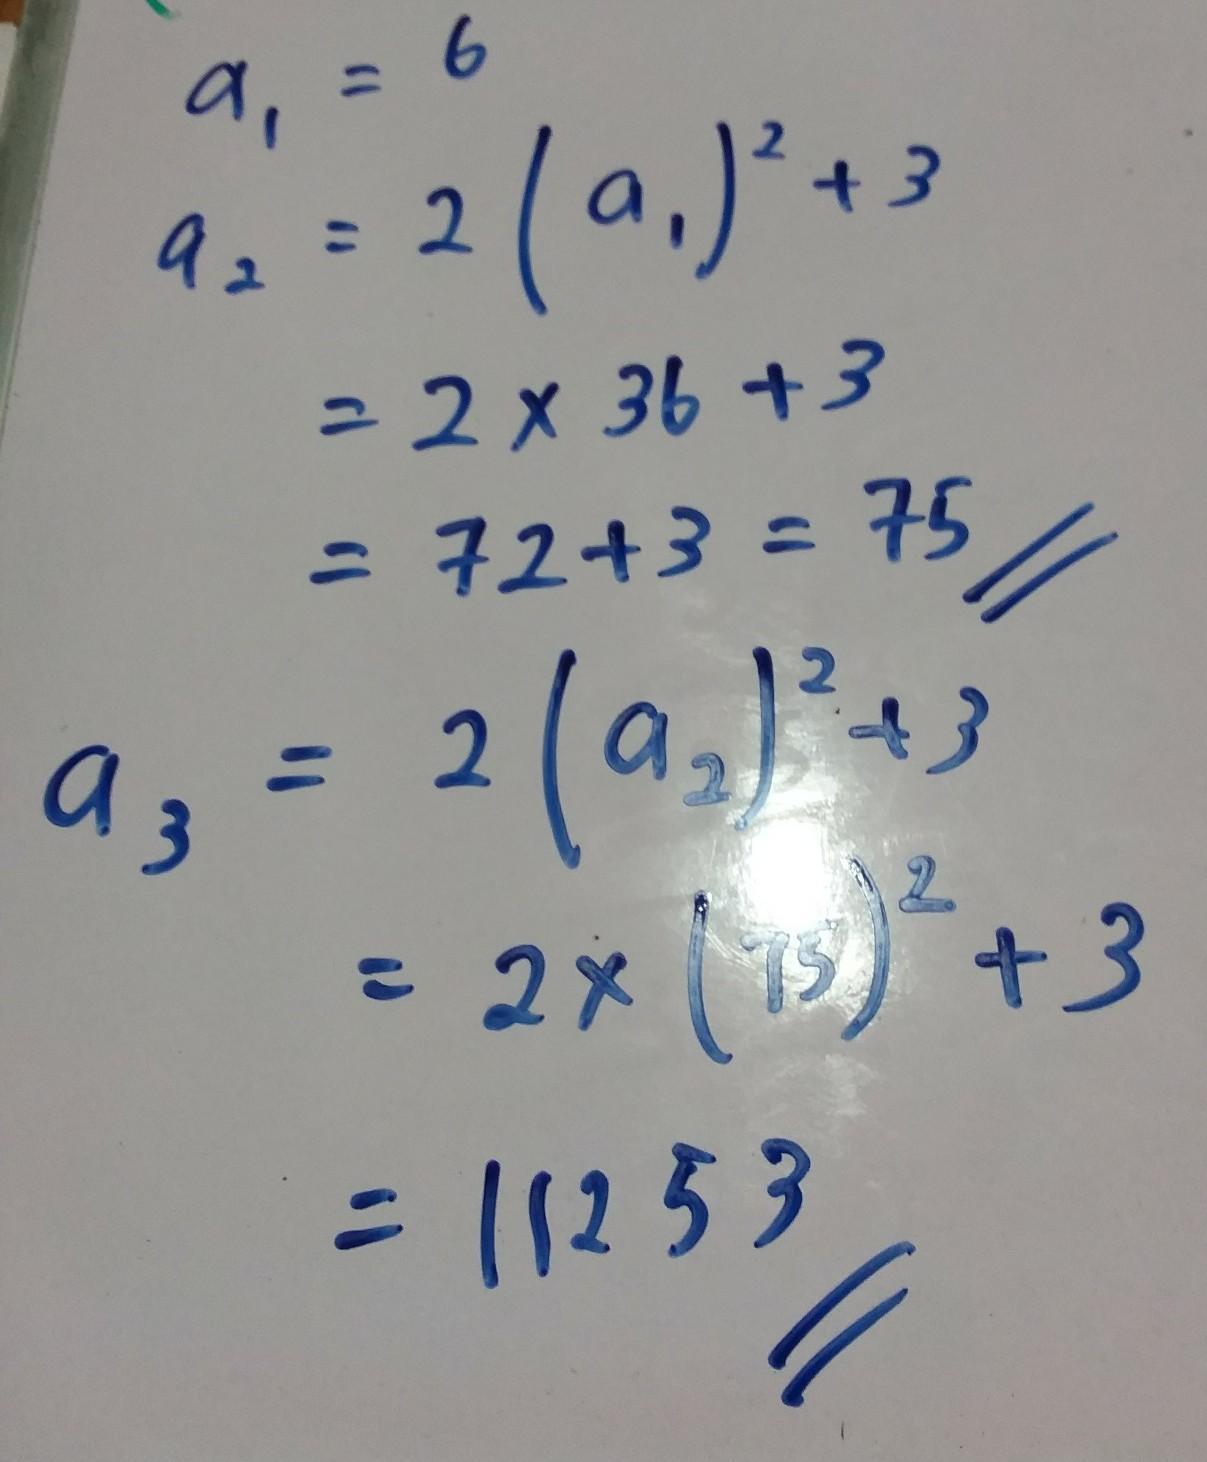 a₁ = 6
a₂ = 2(a₁)² + 3
= 2 × 36 + 3
= 72 + 3 = 75 //
a₃ = 2(a₂)² + 3
= 2 × (75)² + 3
= 11253 //